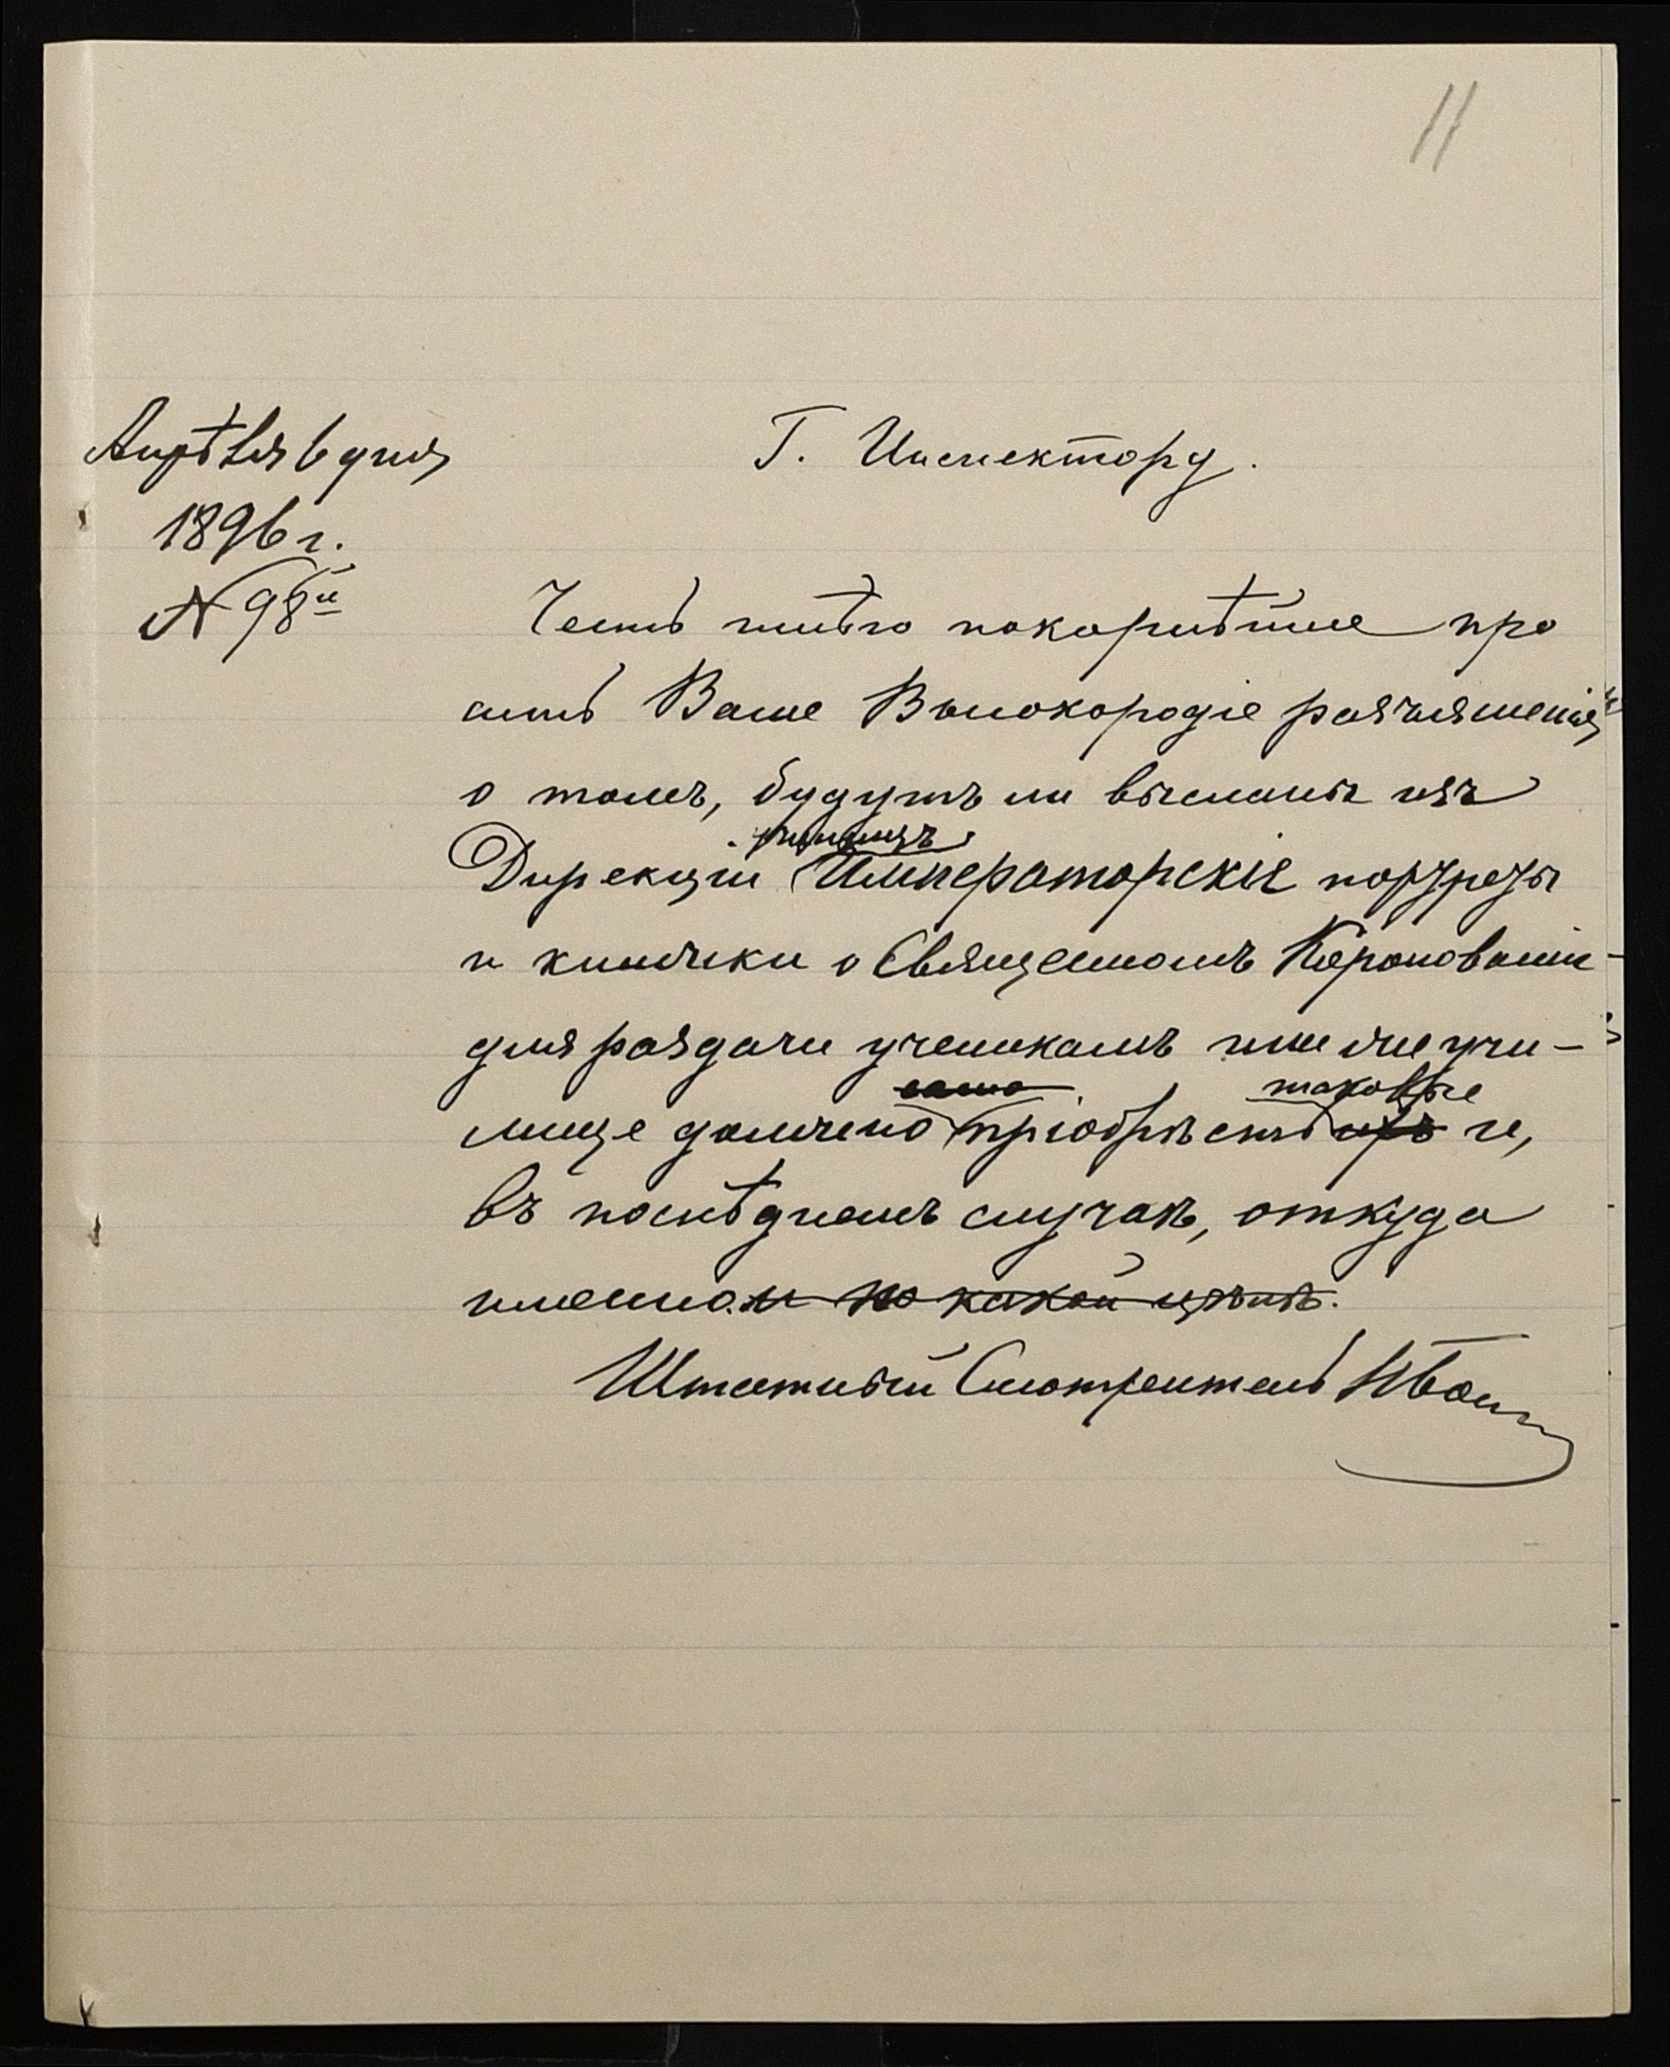 11
Апрѣля 6 дня
1896 г.
№ 98й
Г. Инспектору.
Честь имѣю покорнѣйше про
сить Ваше Высокородіе разъясненія
о томъ, будутъ ли высланы изъ
училищъ
Дирекціи Императорскіе портреты
и книжки о Священномъ Коронованіи
для раздачи ученикамъ или же учи-
само таковые
лище должно пріобрѣсть ихъ и,
въ послѣднемъ случаѣ, откуда
именно. и по какой цѣнѣ.
Штатный Смотритель